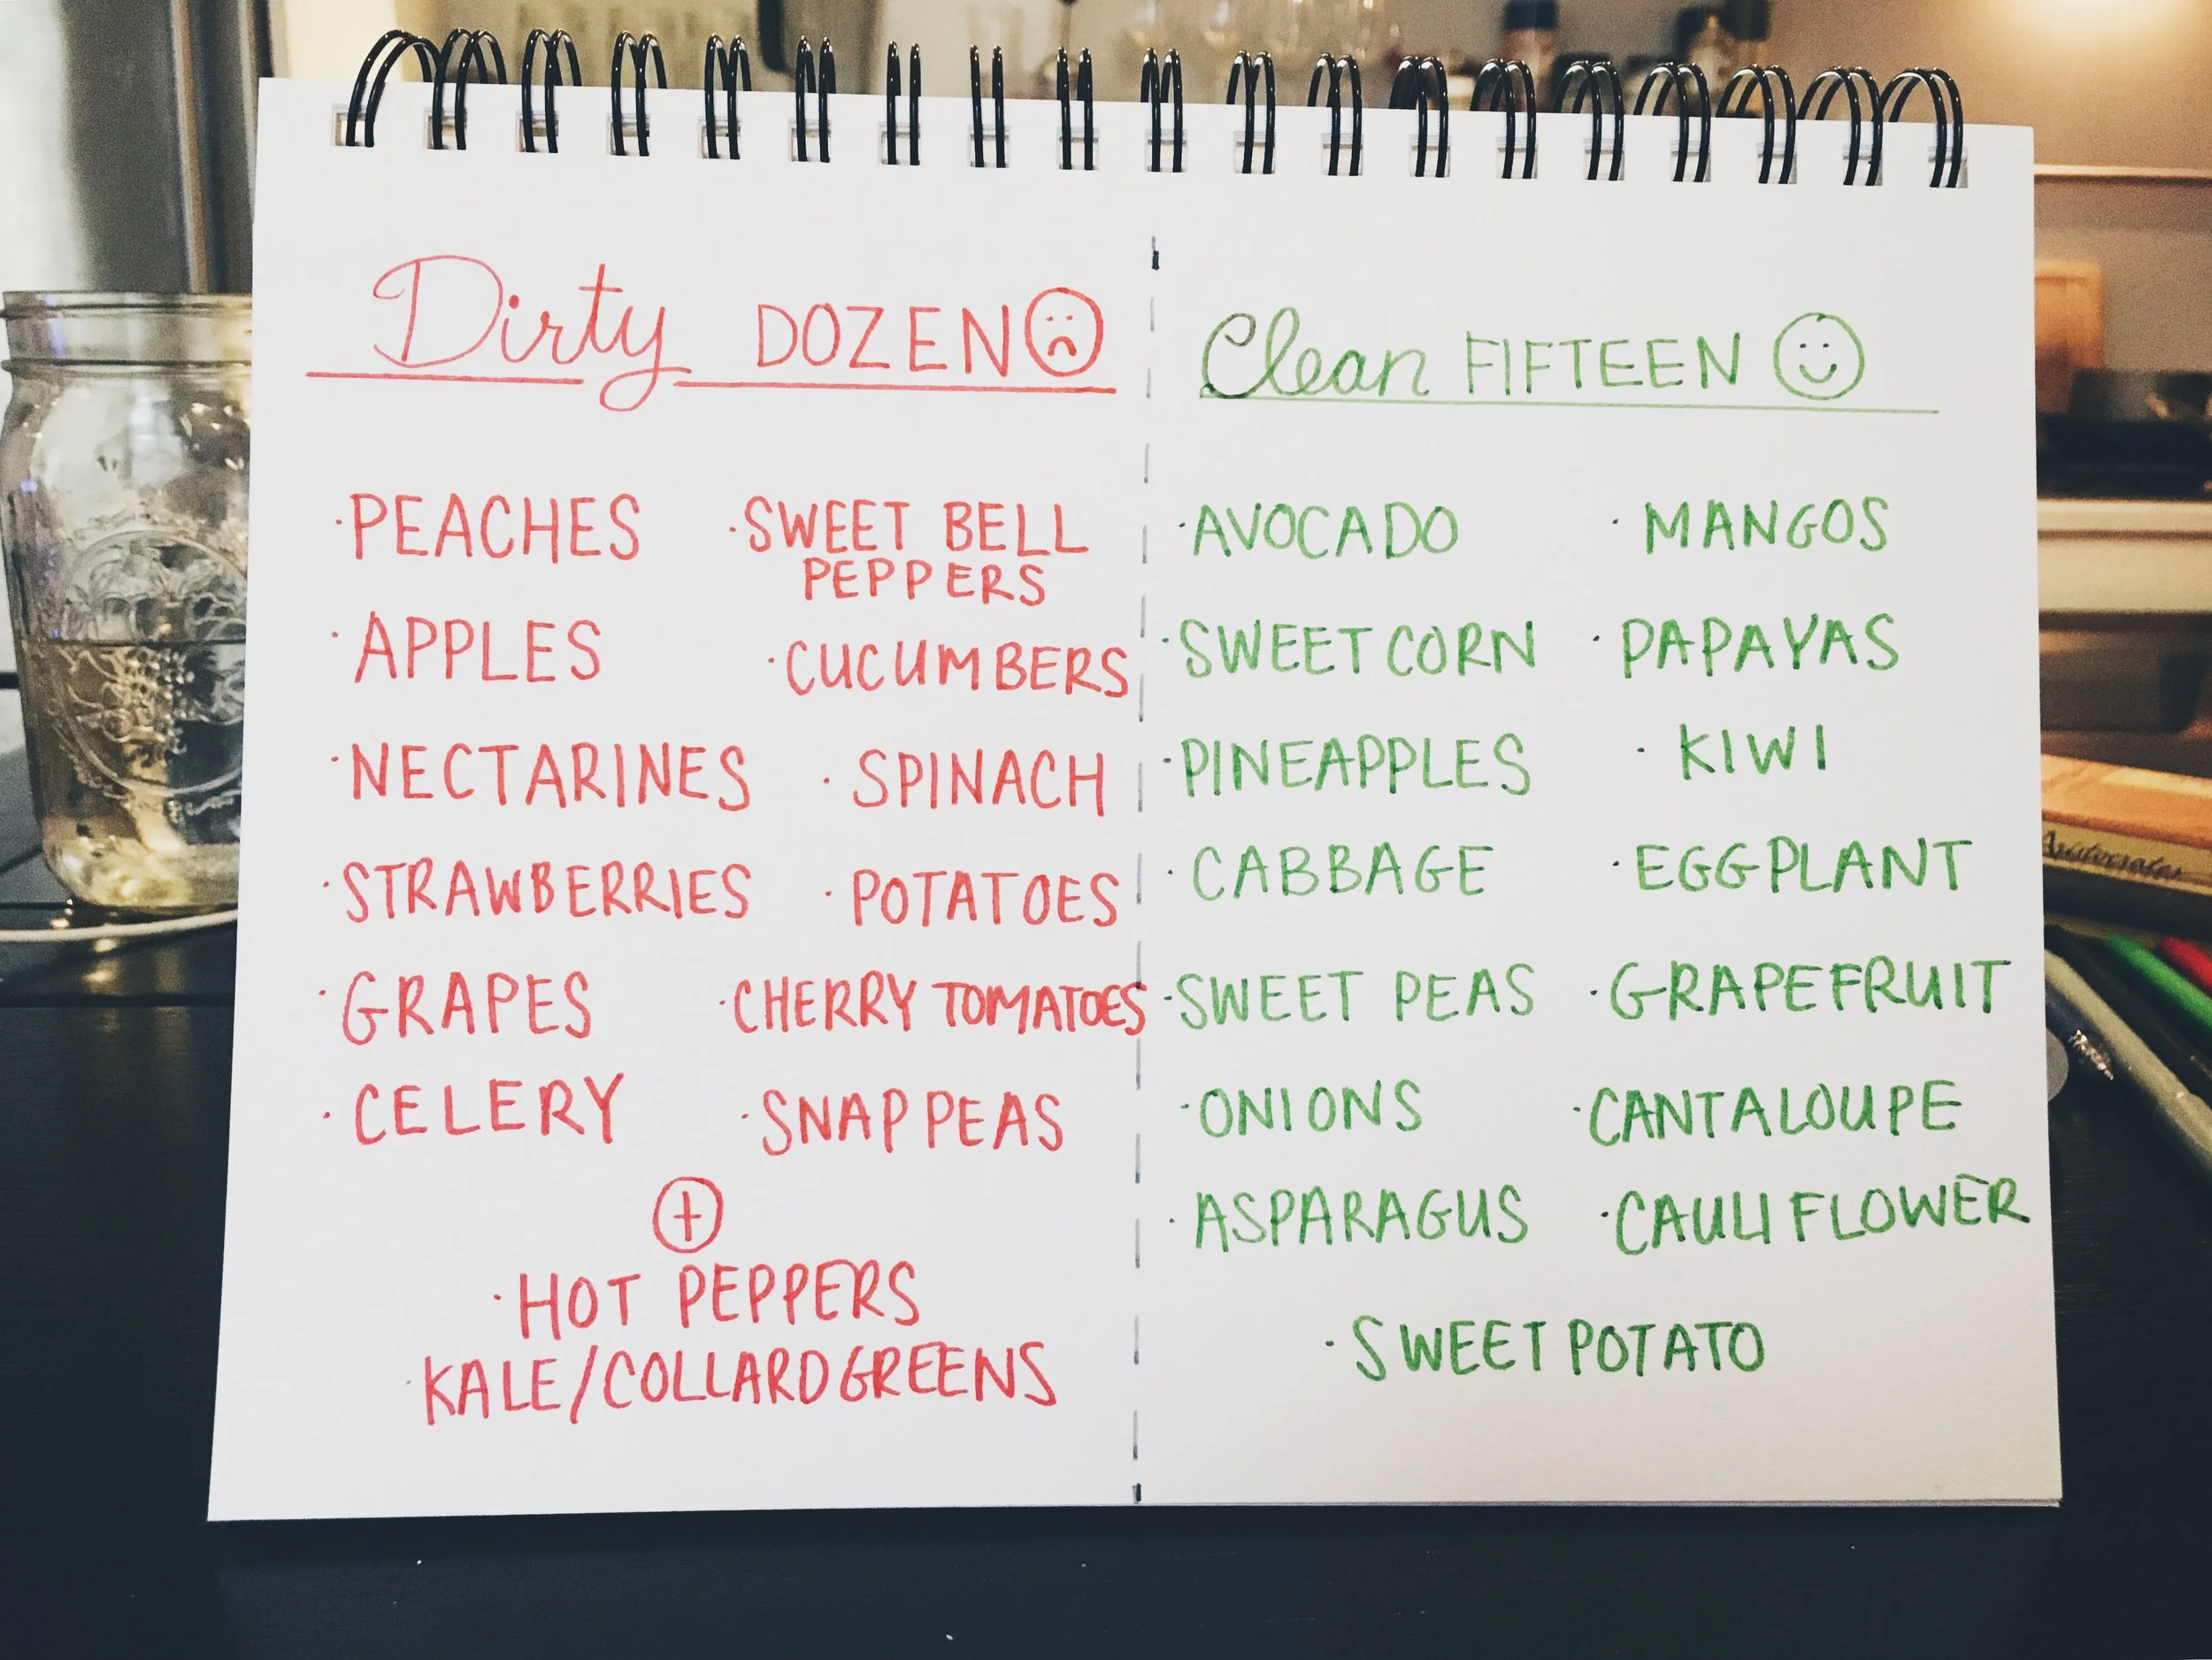 Dirty DOZEN
·PEACHES
·APPLES
·NECTARINES
·STRAWBERRIES
·GRAPES
·CELERY
·SWEET BELL
PEPPERS
·CUCUMBERS
·SPINACH
·POTATOES
·CHERRY TOMATOES
·SNAP PEAS
+
·HOT PEPPERS
·KALE/COLLARD GREENS
Clean FIFTEEN
·AVOCADO
·SWEET CORN
·PINEAPPLES
·CABBAGE
·SWEET PEAS
·ONIONS
·ASPARAGUS
·MANGOS
·PAPAYAS
·KIWI
·EGGPLANT
·GRAPEFRUIT
·CANTALOUPE
·CAULIFLOWER
·SWEET POTATO